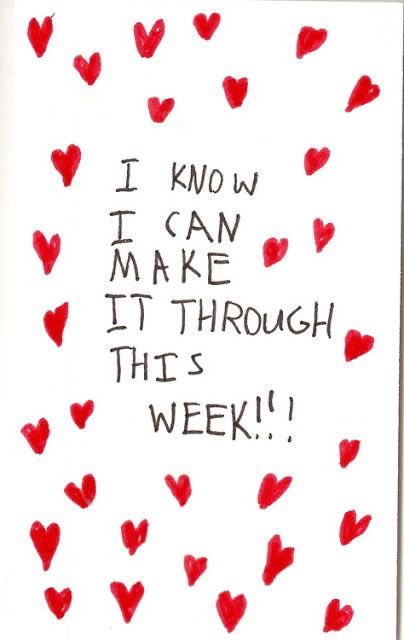 I KNOW
I CAN
MAKE
IT THROUGH
THIS
WEEK!!!